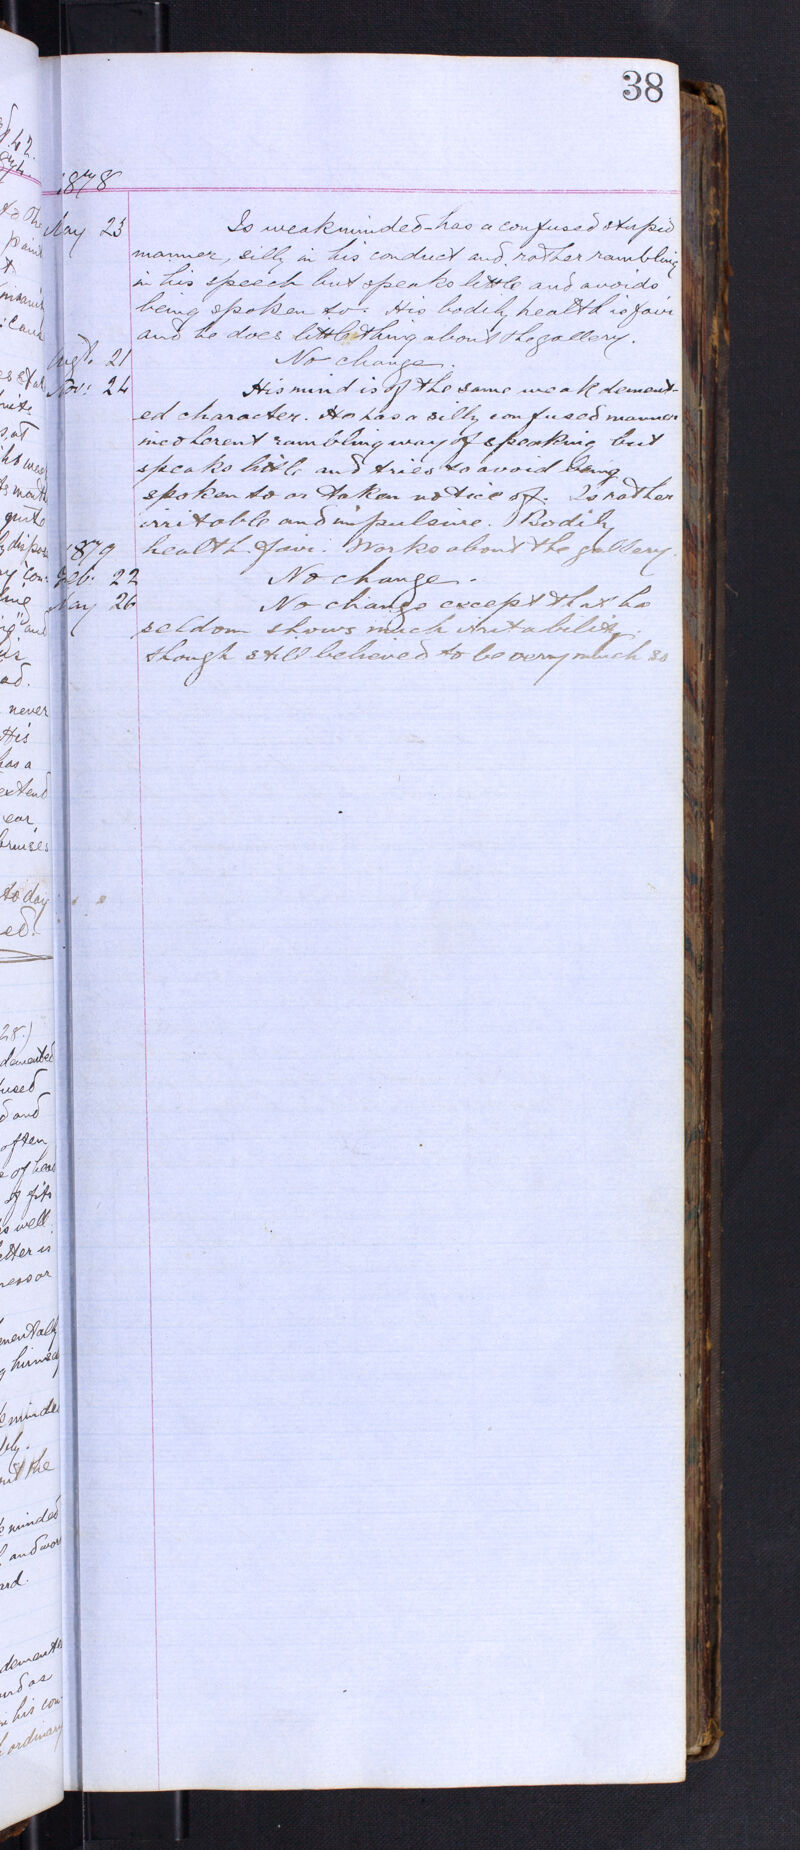 38
1878
May 23 Is weakminded - has a confused stupid
manner, silly in his conduct and rather rambling
in his speech but speaks little and avoids
being spoken to. His bodily health is fair
and he does little thing about the gallery.
Augt. 21 No change.
Nov: 24 His mind is of the same weak dement-
ed character. He has a silly confused manner
incoherent rambling way of speaking but
speaks little and tries to avoid being
spoken to or taken notice of. Is rather
irritable and impulsive. Bodily
1879 health fair. Works about the gallery.
Feb. 22 No change.
May 26 No change except that he
seldom shows much irritability
though still believed to be very much so